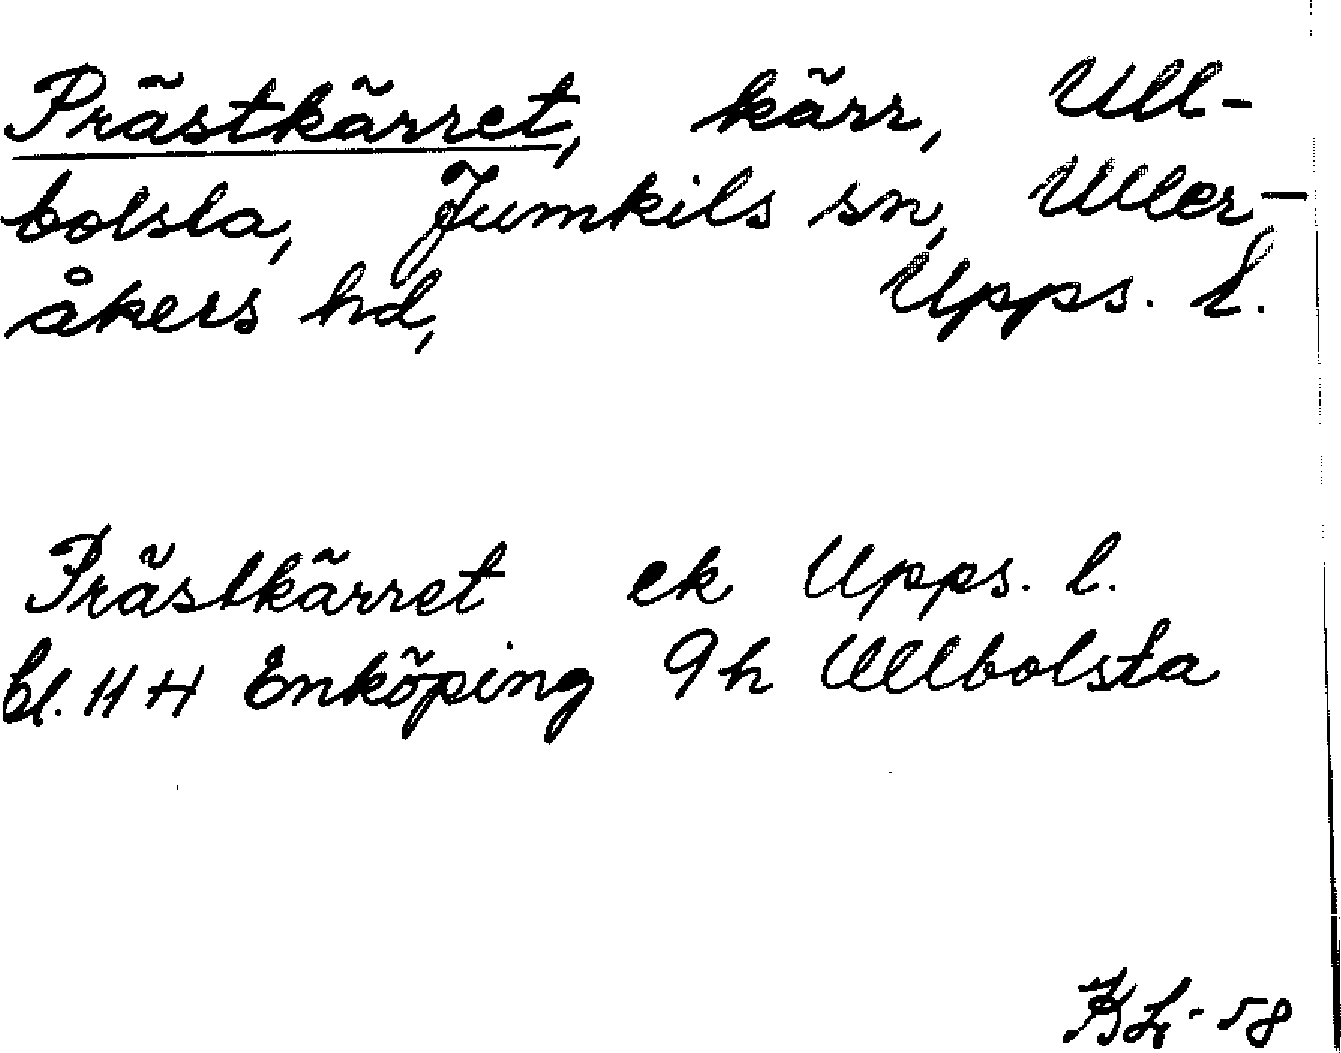 Prästkärret, kärr, Ull-
bolsta, Jumkils sn, Uller-
åkers hd, Upps. l.
Prästkärret ek Upps. l.
bl. 11 H Enköping 9h Ullbolsta
KL-58